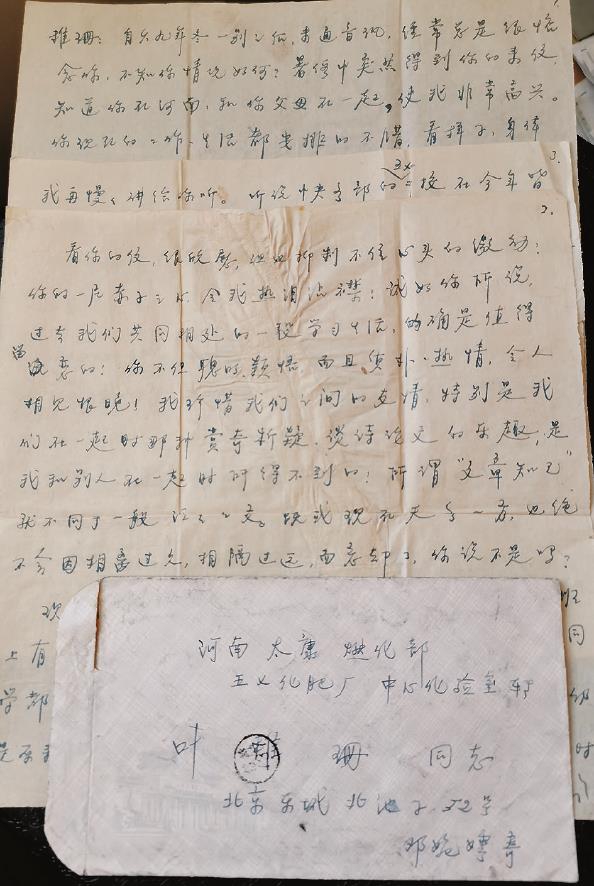 雅珊：自六九年冬一别之后，未通音讯，经常总是很惦
念你，不知你情况如何？暑假中突然得到你的来信，
知道你在河南，和你父母在一起，使我非常高兴。
你现在的工作、生活都安排的不错，看样子，身体
3.
我再慢々讲给你听。听说中央各部的五七校在今年皆
2.
看你的信，很欣慰，但也抑制不住心头的激动：
你的一片赤子之心令我热泪沾襟；诚如你所说，
过去我们共同相处的一段学习生活，的确是值得
留恋的！你不但聪明颖悟，而且质朴、热情，令人
相见恨晚！我珍惜我们之间的友情，特别是我
们在一起时那种赏奇析疑、谈诗论文的乐趣，是
我和别人在一起时所得不到的！所谓“文章知己”
就不同于一般泛々之交。故我现在天各一方，也绝
不会因相离过久，相隔过远，而忘却了，你说不是吗？
现 班
上有 同
学都 级
时
河南 太康 燃化部
五七化肥厂 中心化验室 转
叶 雅 珊 同志
北京 东城 北池子 52号
邓婉娉寄